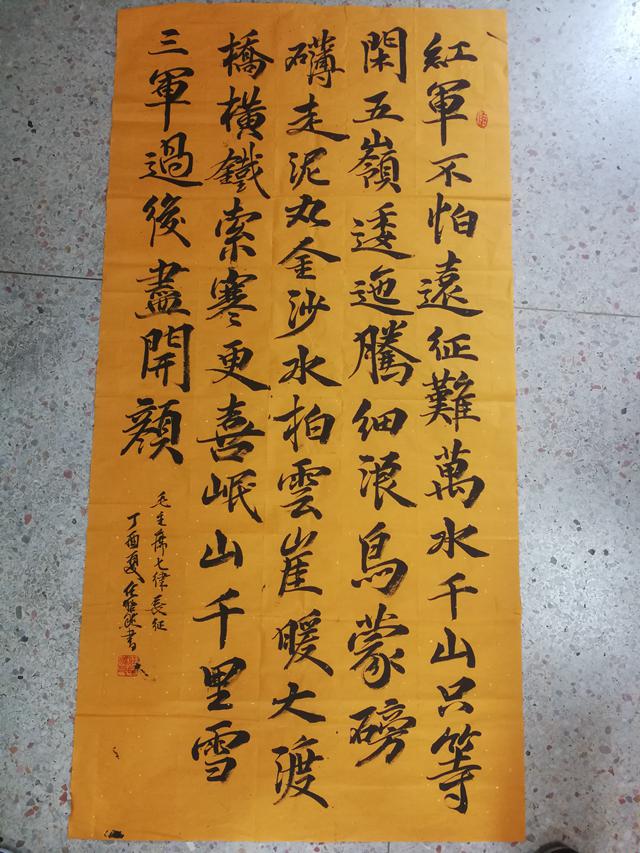 紅軍不怕遠征難萬水千山只等
閑五嶺逶迤騰細浪烏蒙磅
礴走泥丸金沙水拍雲崖暖大渡
橋橫鐵索寒更喜岷山千里雪
三軍過後盡開顏
毛主席七律長征
丁酉夏書